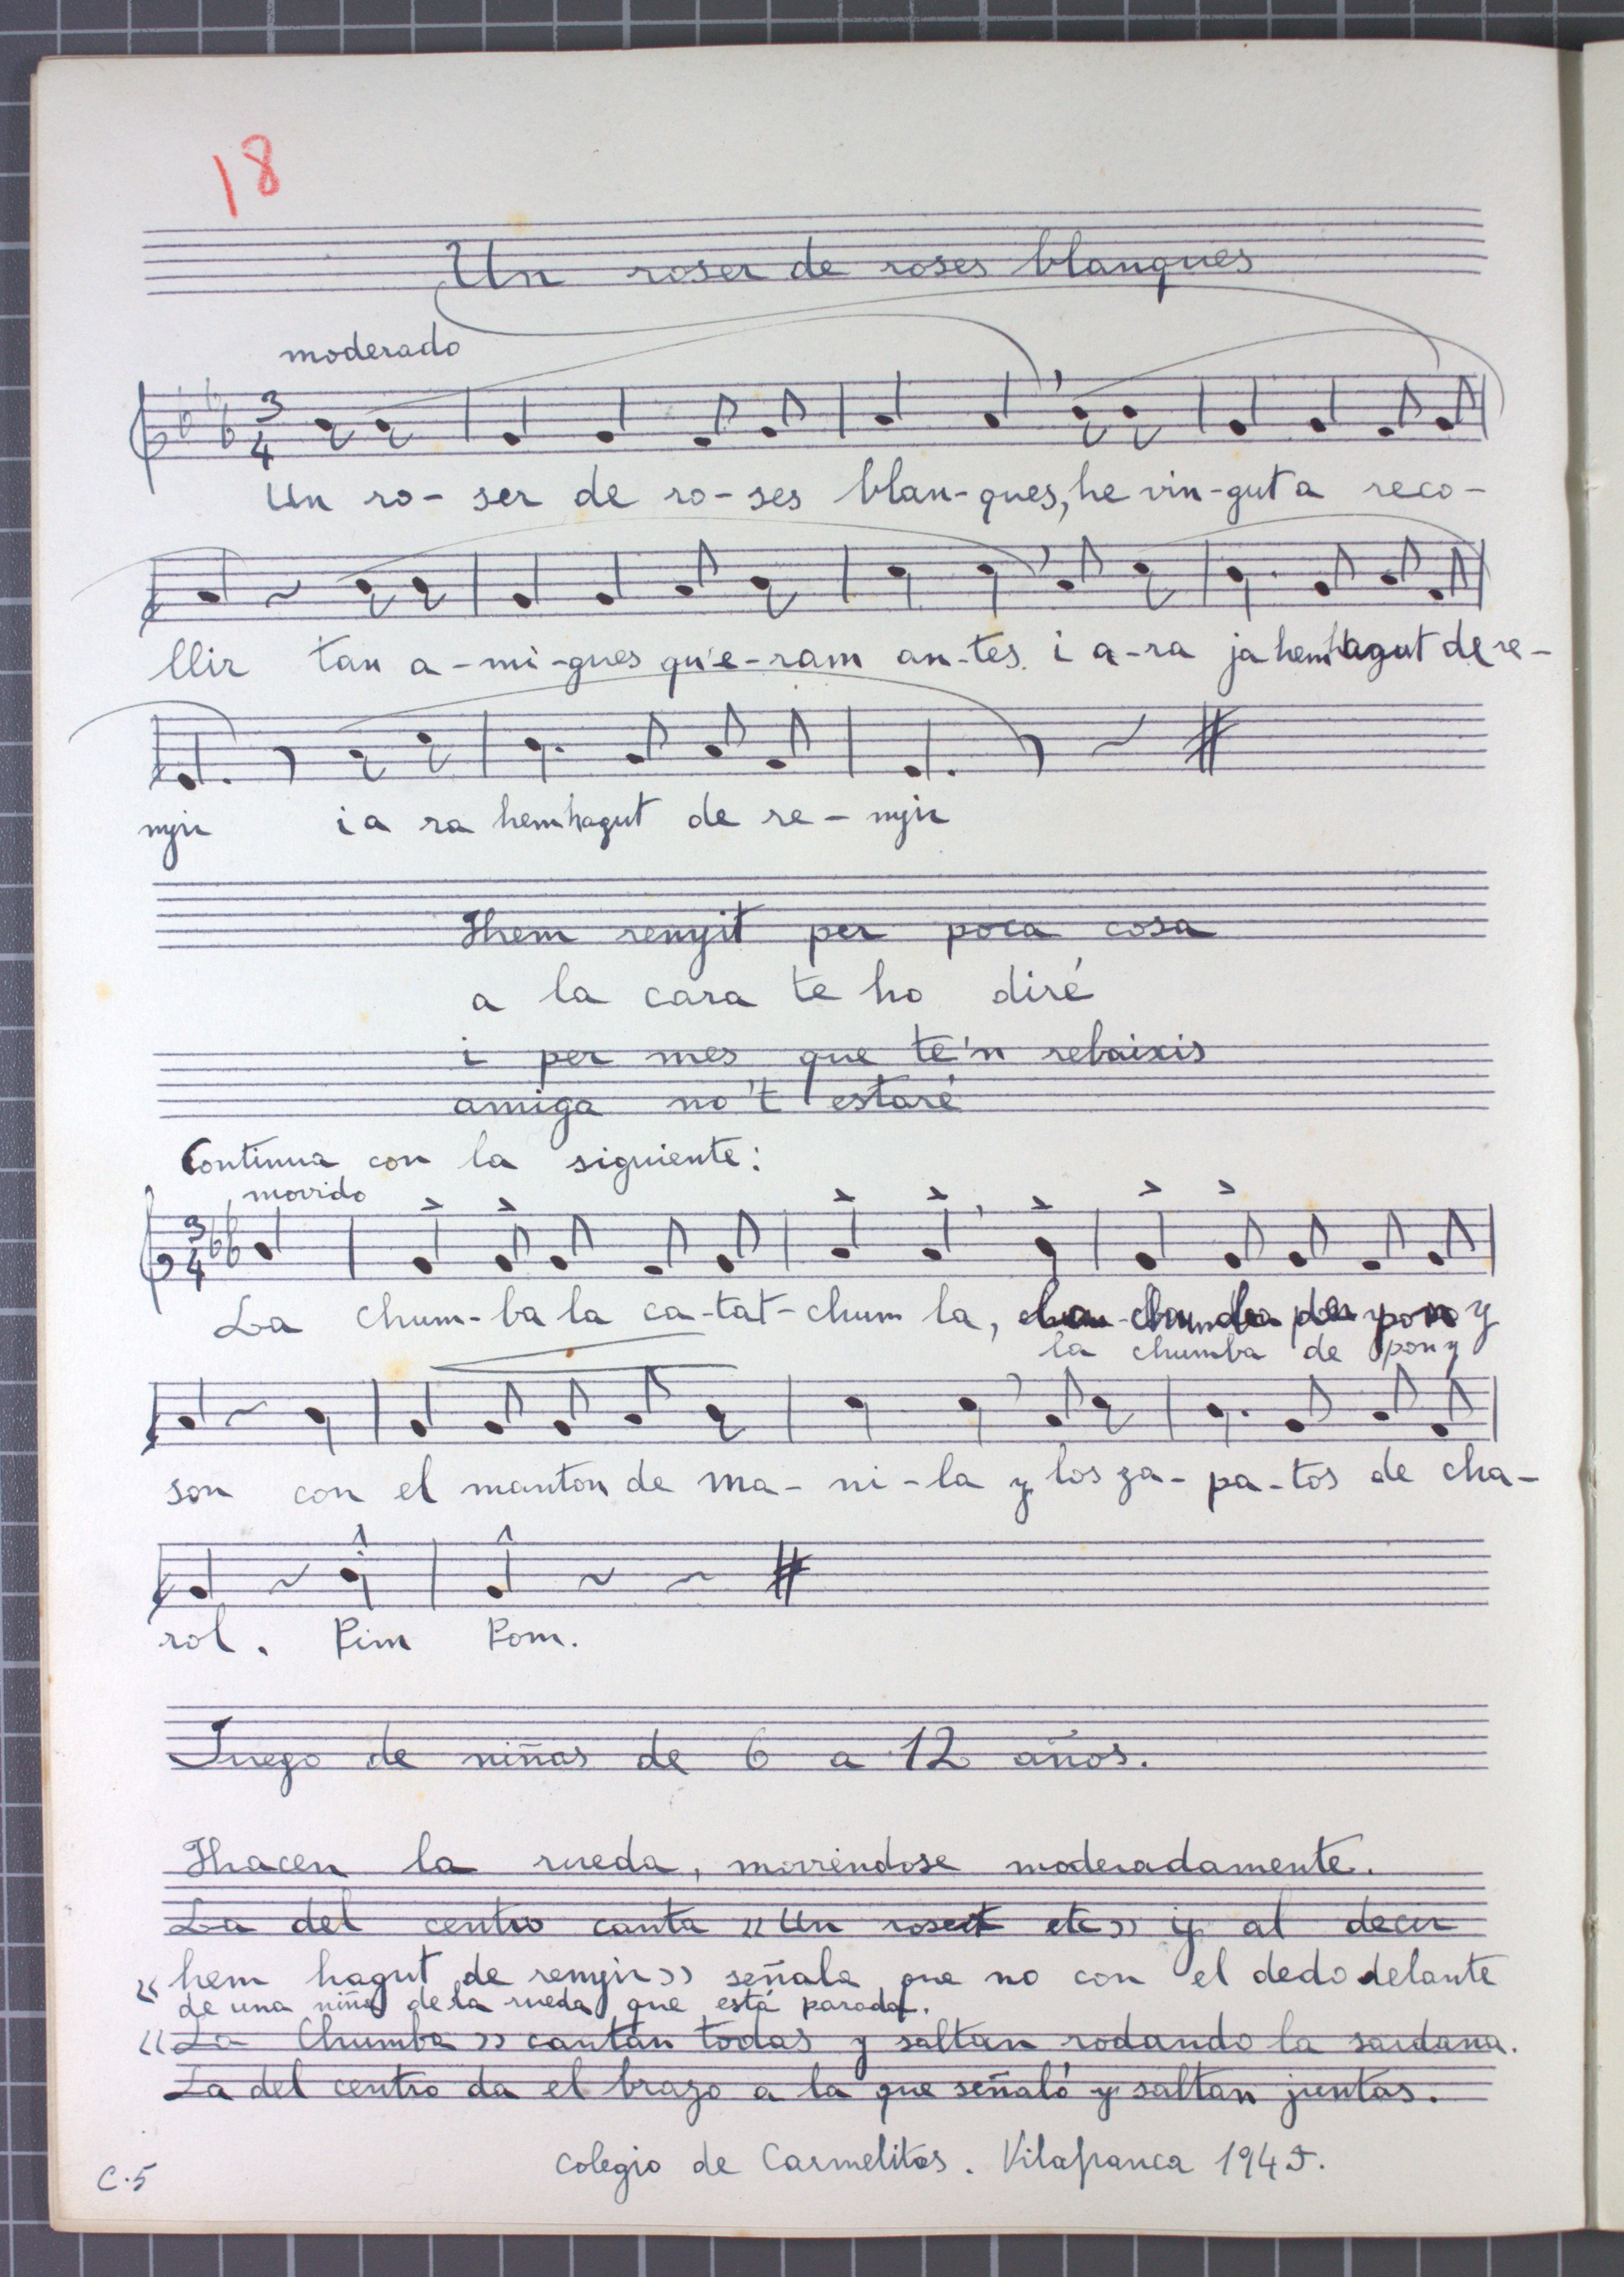 18
Un roser de roses blanques
moderado
3
4
Un ro-ser de ro-ses blan-ques, he vin-gut a reco-
llir tan a-mi-gues qu'e-ram an-tes. i a-ra ja hem hagut de re-
nyir i a ra hem hagut de re-nyir
Hem renyit per poca cosa
a la cara te ho diré
i per mes que te'n rebaixis
amiga no't estaré
Continua con la siguiente:
movido
3
4
La chum-ba la ca-tat-chum la, y
la chumba de pon y
son con el manton de ma-ni-la y los za-pa-tos de cha-
rol. Pim Pom.
Juego de niñas de 6 a 12 años.
Hacen la rueda, moviéndose moderadamente.
La del centro canta «Un roser etc» y al decir
«hem hagut de renyir» señala que no con el dedo delante
de una niña de la rueda que está parada.
«La Chumba» cantan todas y saltan rodando la sardana.
La del centro da el brazo a la que señaló y saltan juntas.
Colegio de Carmelitas. Vilafranca 1945.
C.5